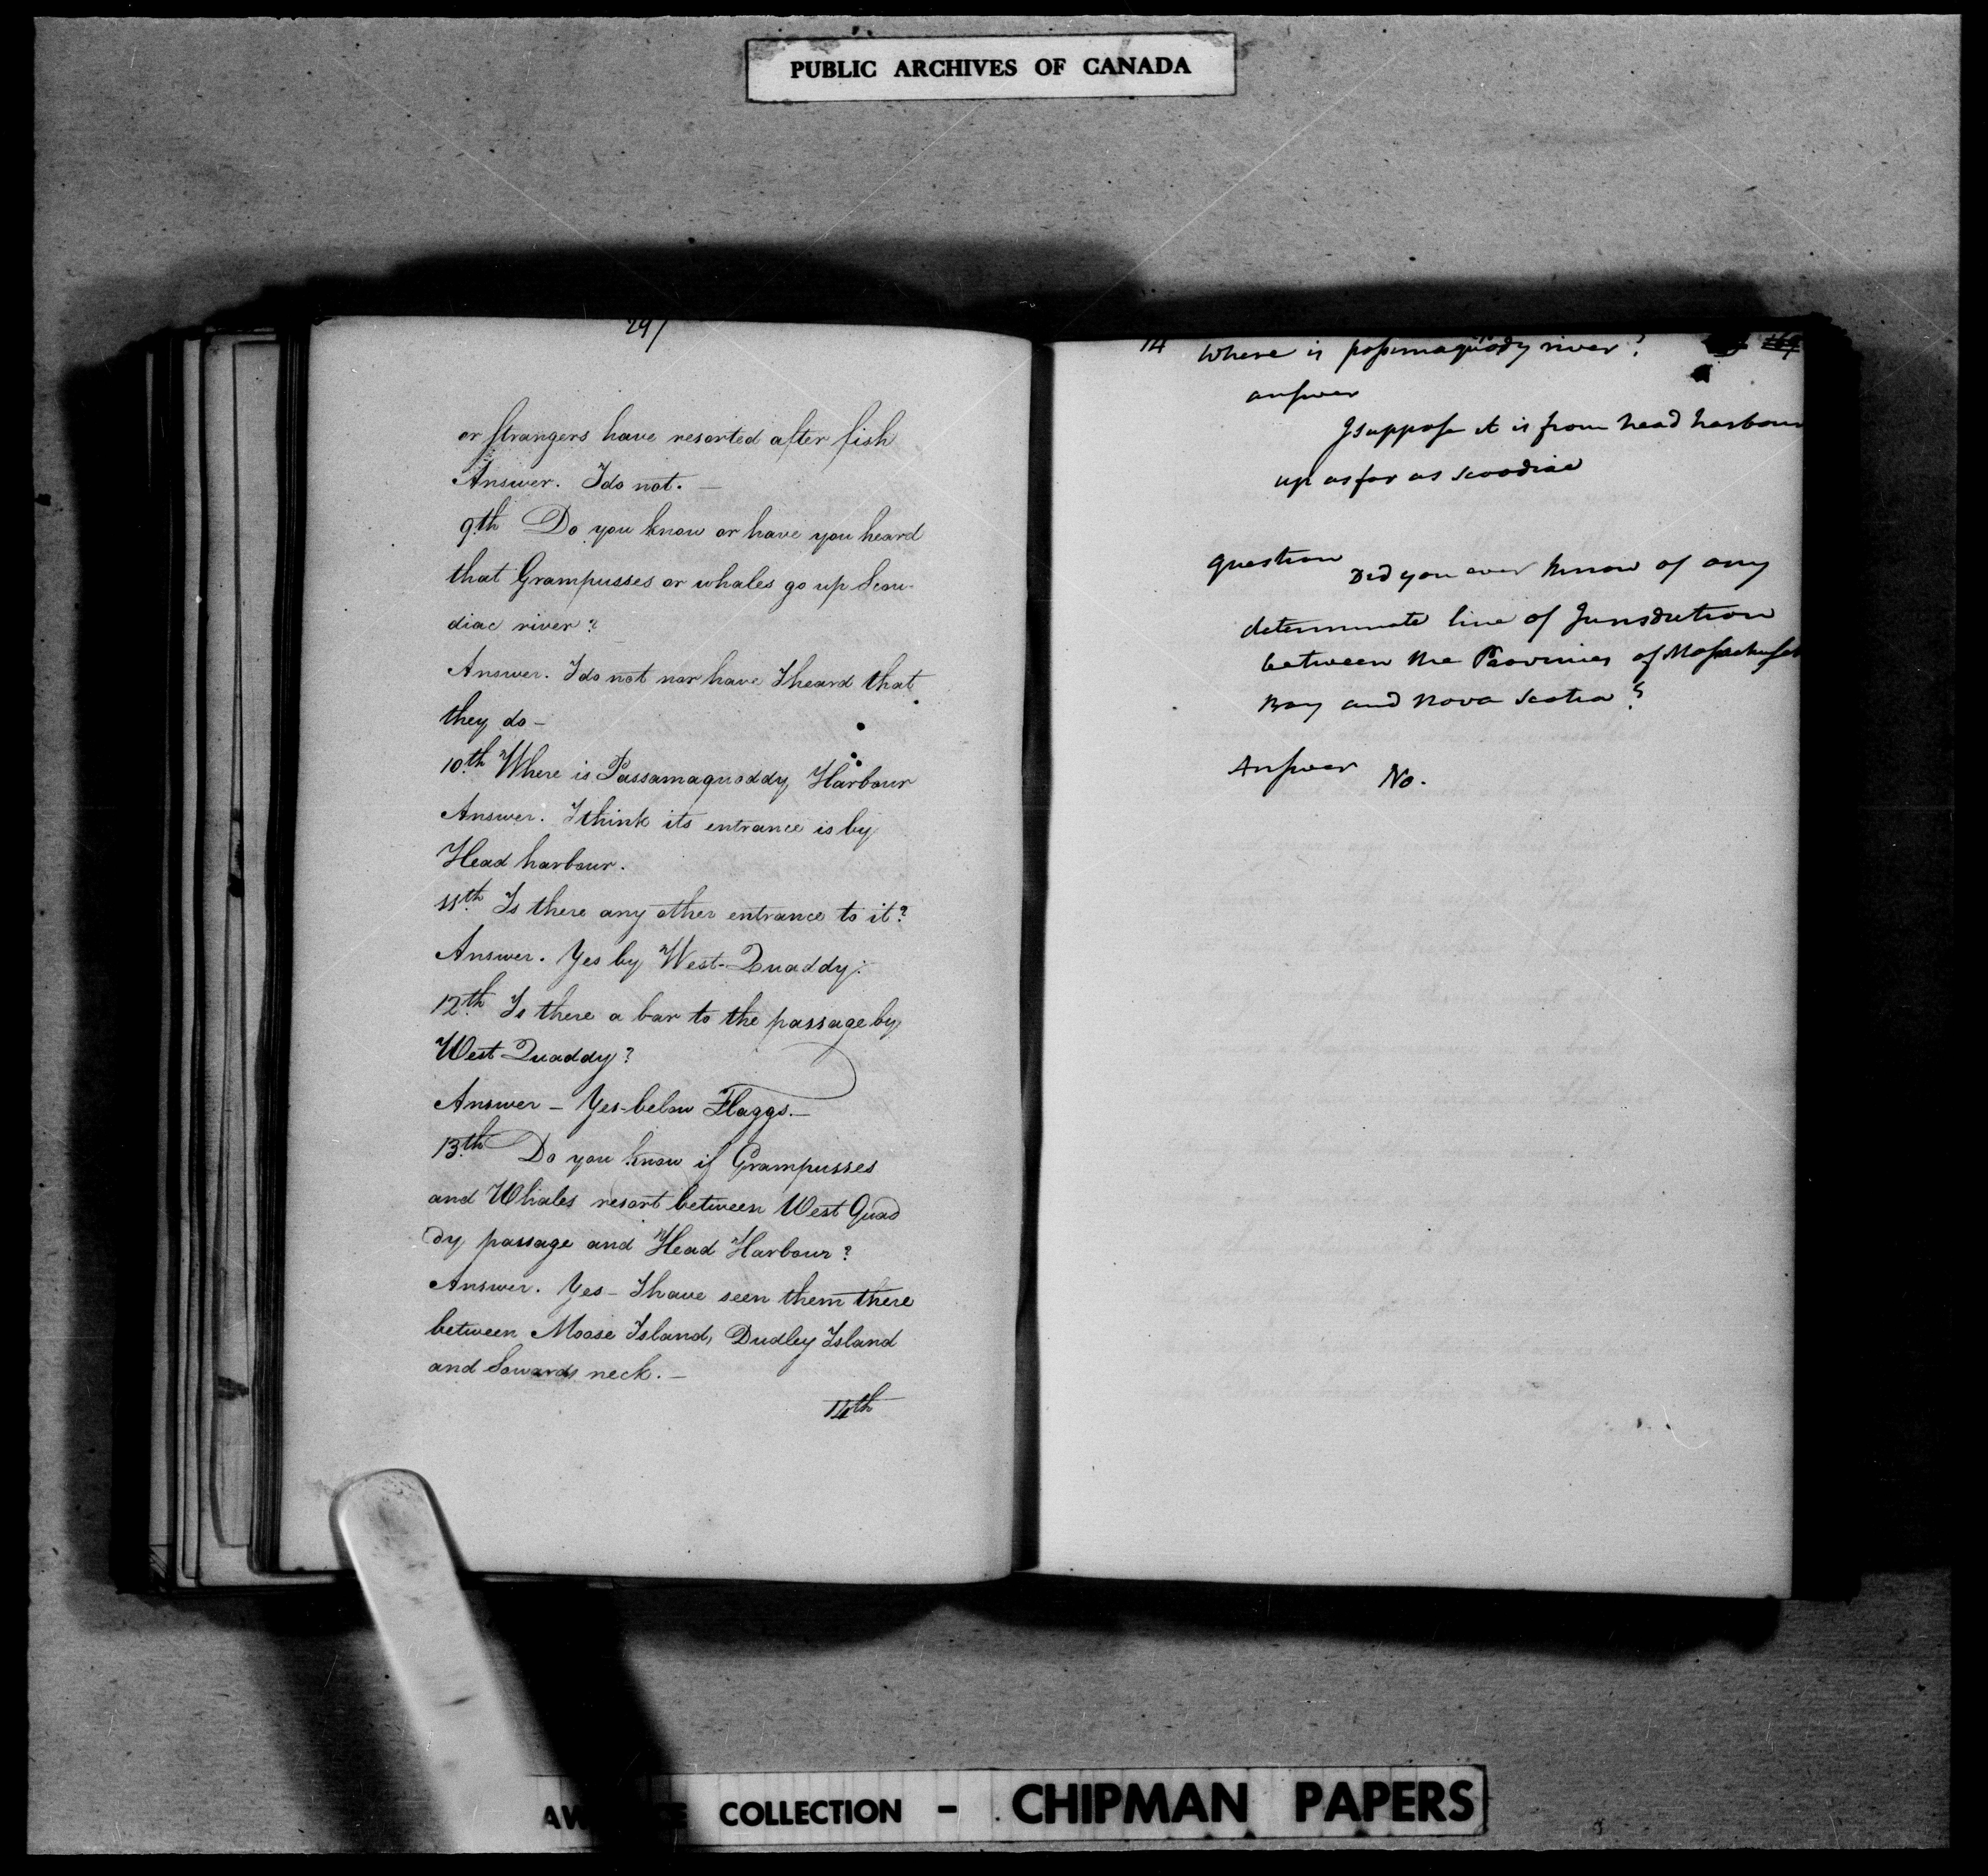 PUBLIC ARCHIVES OF CANADA
297
or strangers have resorted after fish
Answer. I do not. —
9th Do you know or have you heard
that Grampusses or whales go up Scou-
diac river?
Answer. I do not nor have I heard that
they do —
10th Where is Passamaquoddy Harbour
Answer. I think its entrance is by
Head harbour.
11th Is there any other entrance to it?
Answer. Yes by West-Quaddy.
12th Is there a bar to the passage by
West Quaddy?
Answer — Yes-below Flaggs. —
13th Do you know if Grampusses
and Whales resort between West Quad
dy passage and Head Harbour?
Answer. Yes — I have seen them there
between Moose Island, Dudley Island
and Sowards neck. —
14th
14 Where is passmaquody river? 169
answer
I suppose it is from head harbour
up as far as scoodiac
question Did you ever know of any
determinate line of Jurisdiction
between the Provinces of Massachuset
Bay and Nova Scotia?
Answer No.
COLLECTION - CHIPMAN PAPERS